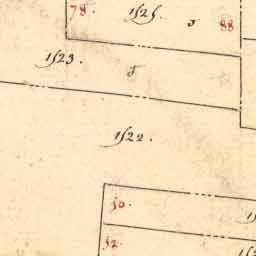 78.
1525.
88
1523.
1522.
50.
52.